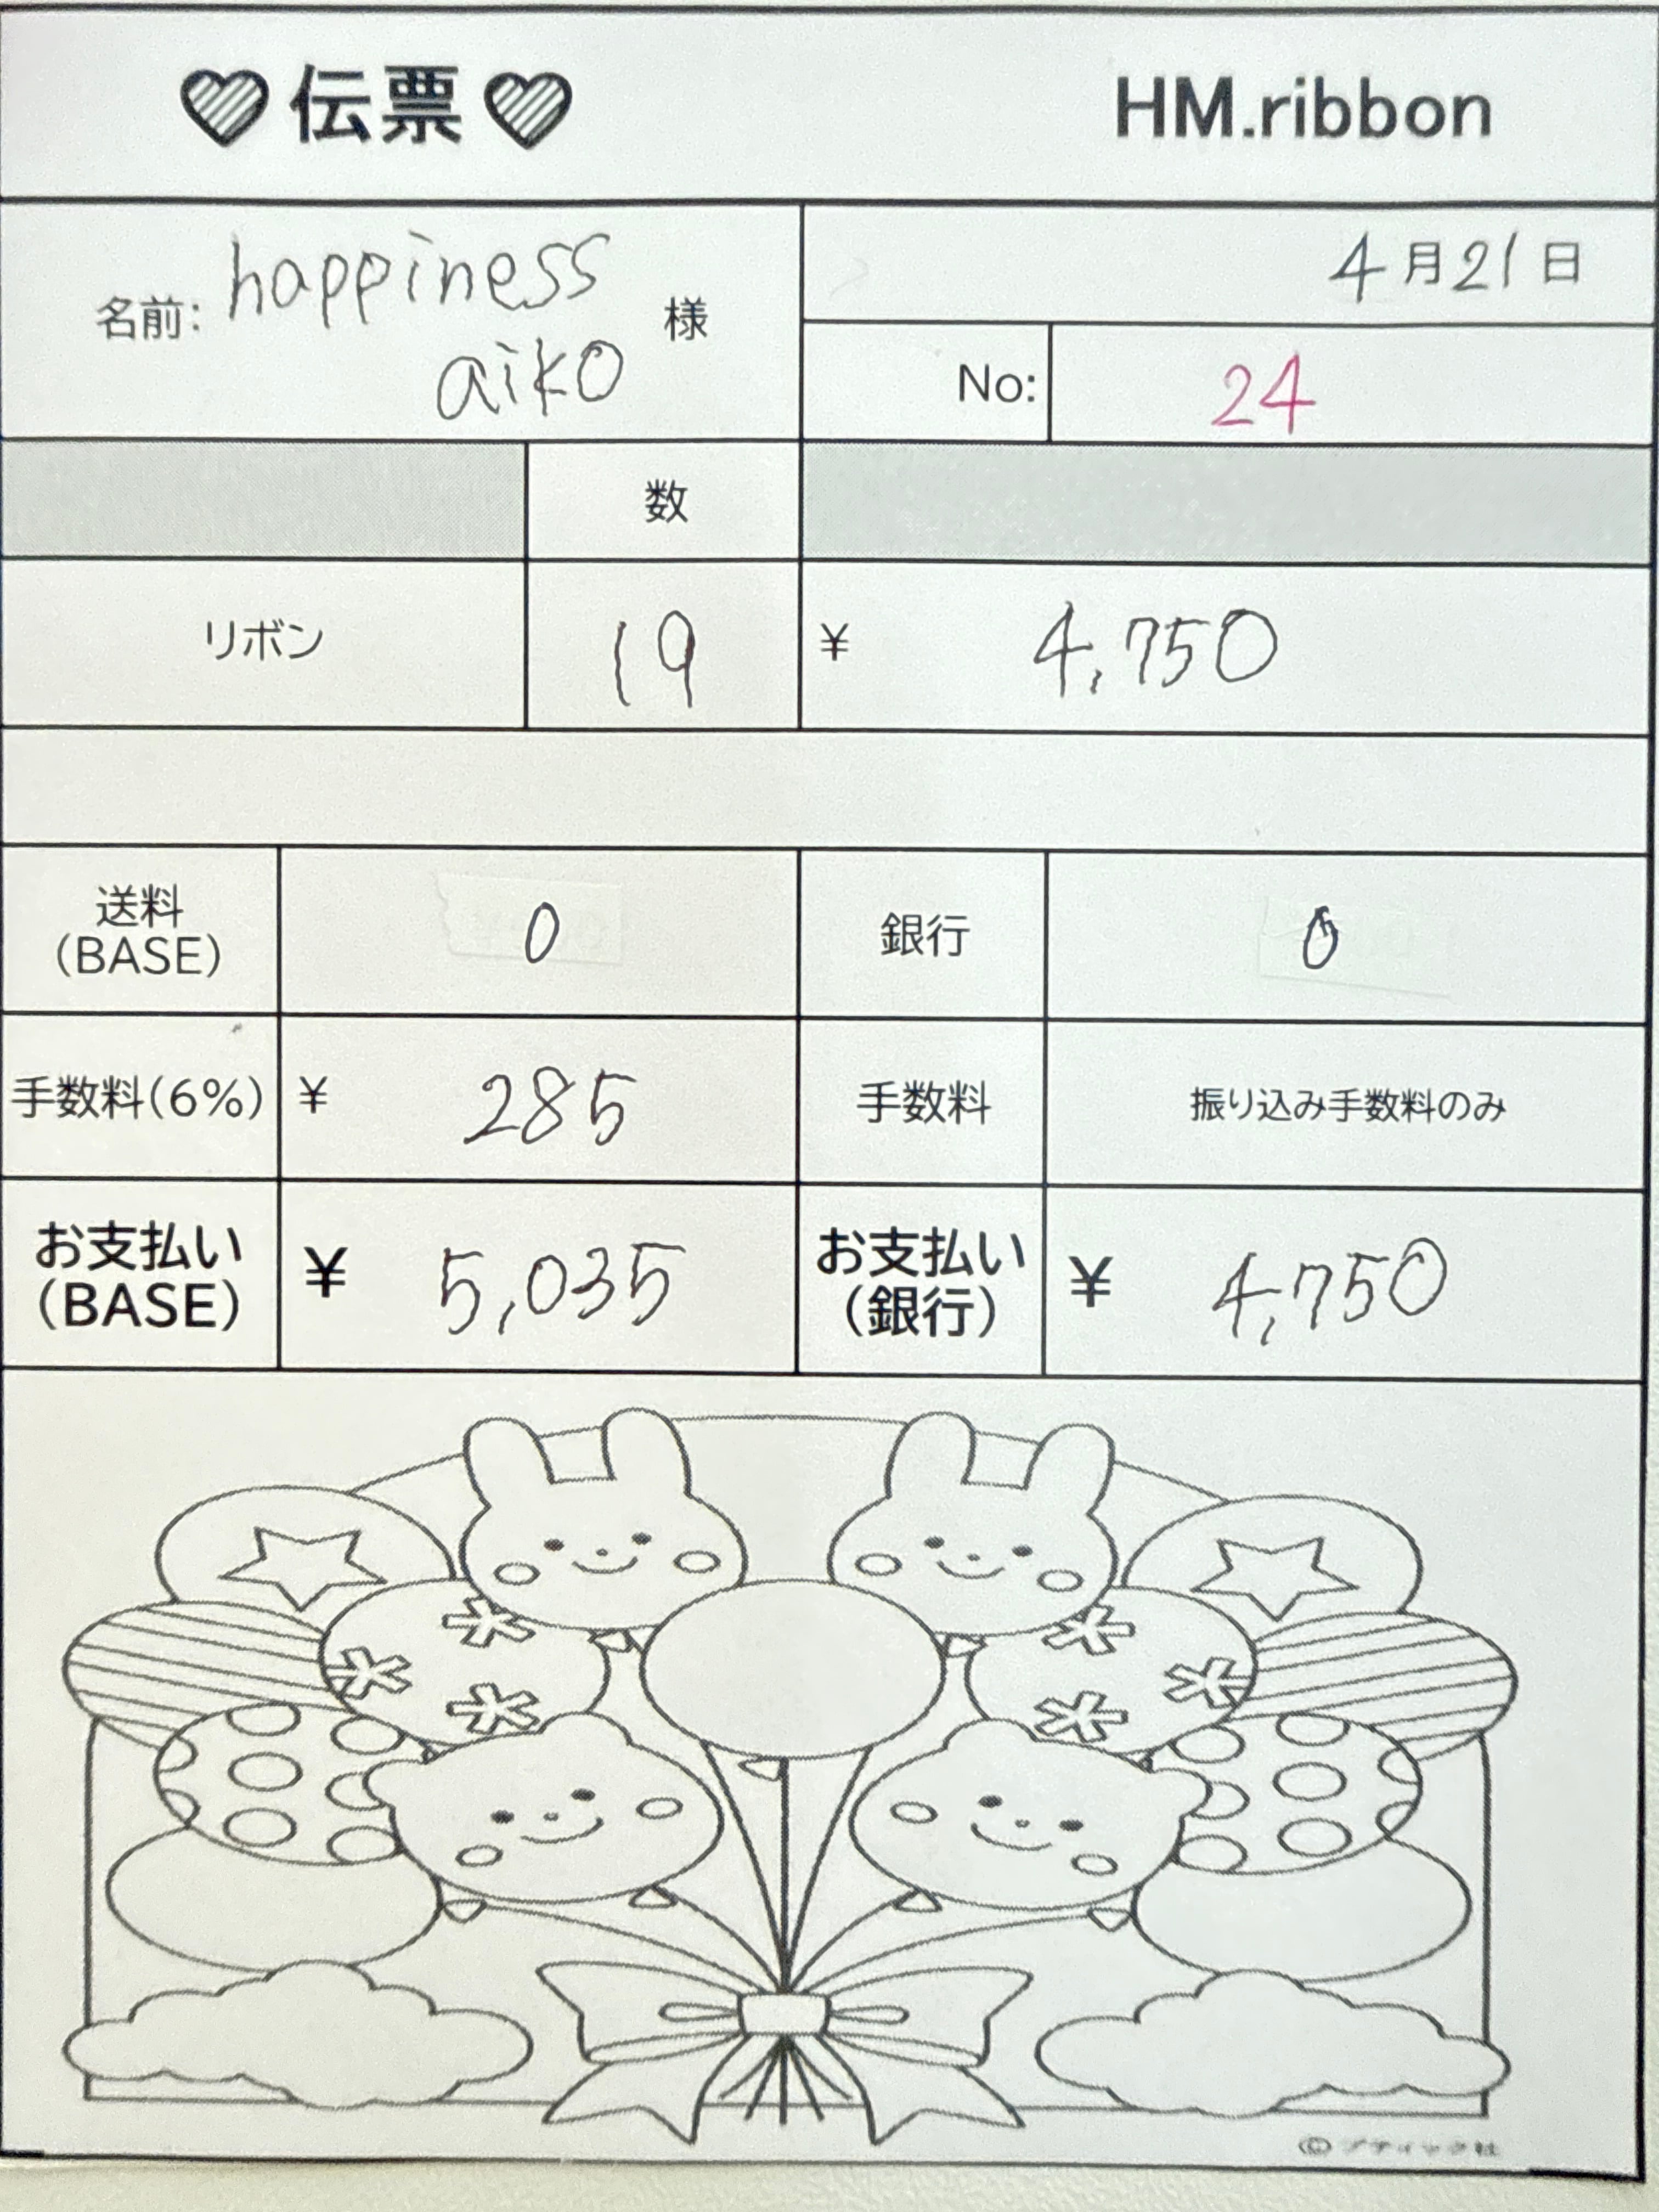 ♡伝票♡ HM.ribbon
名前: happiness aiko 様
4月21日
No: 24
数
リボン 19 ¥ 4,750
送料(BASE) 0 銀行 0
手数料(6%) ¥ 285 手数料 振り込み手数料のみ
お支払い(BASE) ¥ 5,035 お支払い(銀行) ¥ 4,750
©ブティック社